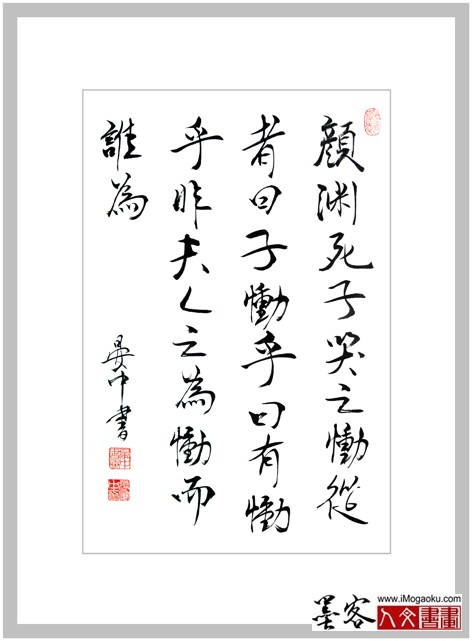 顔渊死子哭之慟從
者曰子慟乎曰有慟
乎非夫人之為慟而
誰為
晏中書
www.iMogaoku.com
墨客
人文書畫